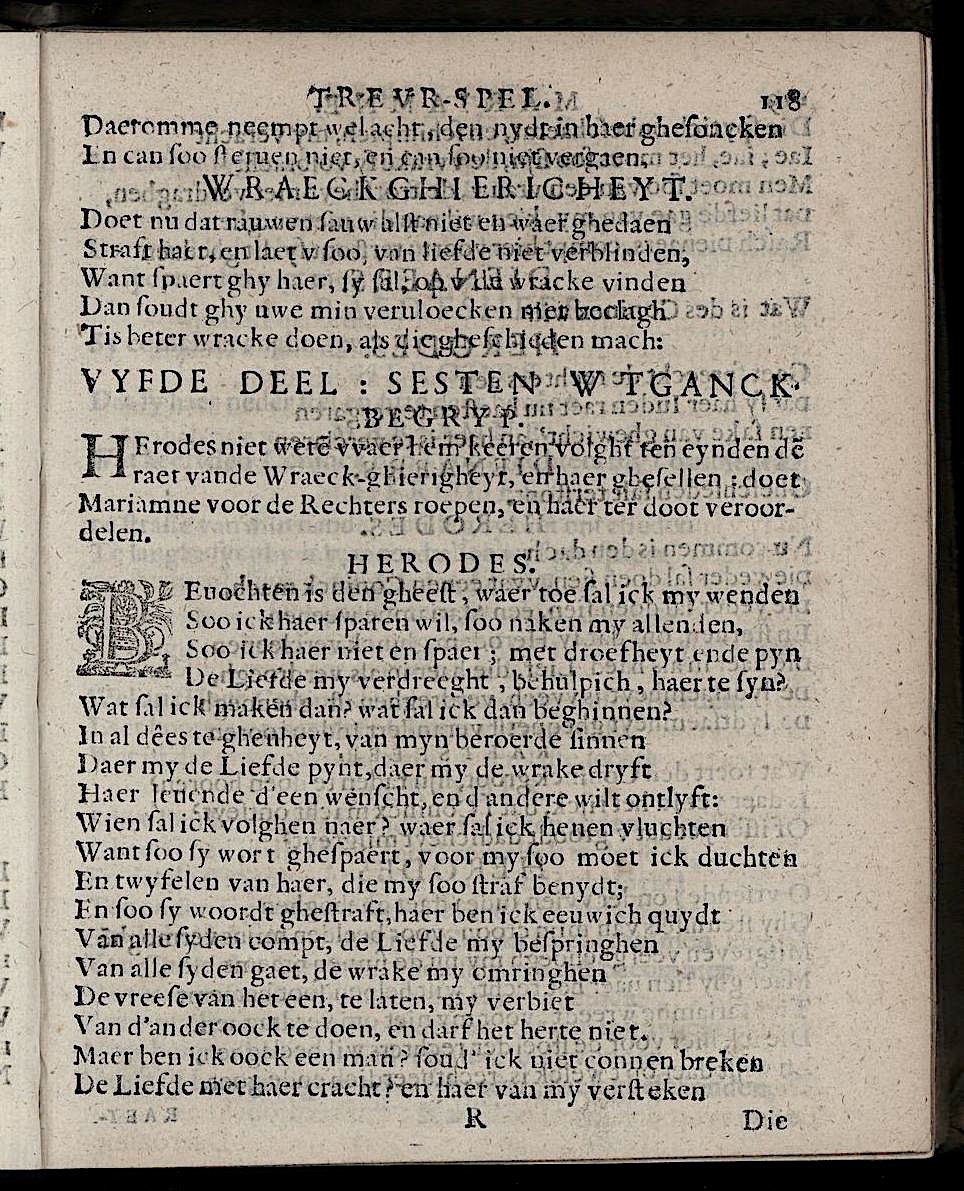 TREVR-SPEL. 118
Daeromme neempt wel acht, den nydt in haer ghesoncken
En can soo steruen niet, en can soo niet vergaen.
WRAECKGHIERIGHEYT.
Doet nu dat rauwen sauw alst niet en waer ghedaen
Straft haer, en laet v soo, van liefde niet verblinden,
Want spaert ghy haer, sy sal, op v die wracke vinden
Dan soudt ghy uwe min veruloecken met beclagh
'Tis beter wracke doen, als die gheschieden mach:
VYFDE DEEL : SESTEN WTGANCK.
BEGRYP.
HErodes niet wete vvaer hem keeren volght ten eynden dē
raet vande Wraeck-ghierigheyt, en haer ghesellen : doet
Mariamne voor de Rechters roepen, en haer ter doot veroor-
delen.
HERODES.
BEuochten is den gheest, waer toe sal ick my wenden
Soo ick haer sparen wil, soo naken my allenden,
Soo ick haer niet en spaer ; met droefheyt ende pyn
De Liefde my verdreeght , behulpich , haer te syn?
Wat sal ick maken dan? wat sal ick dan beghinnen?
In al dees te ghenheyt, van myn beroerde sinnen
Daer my de Liefde pynt, daer my de wrake dryft
Haer leuende d'een wenscht, en d'andere wilt ontlyft:
Wien sal ick volghen naer? waer sal ick henen vluchten
Want soo sy wort ghespaert, voor my soo moet ick duchten
En twyfelen van haer, die my soo straf benydt;
En soo sy woordt ghestraft, haer ben ick eeuwich quydt
Van alle syden compt, de Liefde my bespringhen
Van alle syden gaet, de wrake my omringhen
De vreese van het een, te laten, my verbiet
Van d'ander oock te doen, en darf het herte niet.
Maer ben ick oock een man? soud' ick niet connen breken
De Liefde met haer cracht? en haer van my versteken
R Die